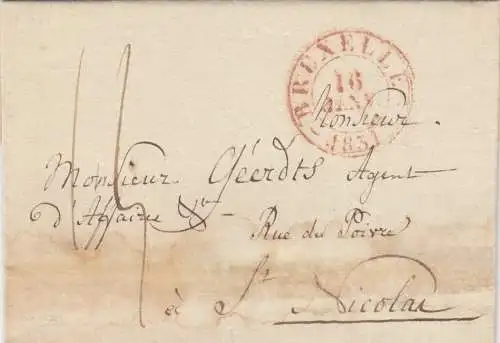 BRUXELLES
16
JANV
1831
Monsieur
Monsieur Géerdts Agent
d'Affaire &c
Rue du Poivre
à St Nicolas